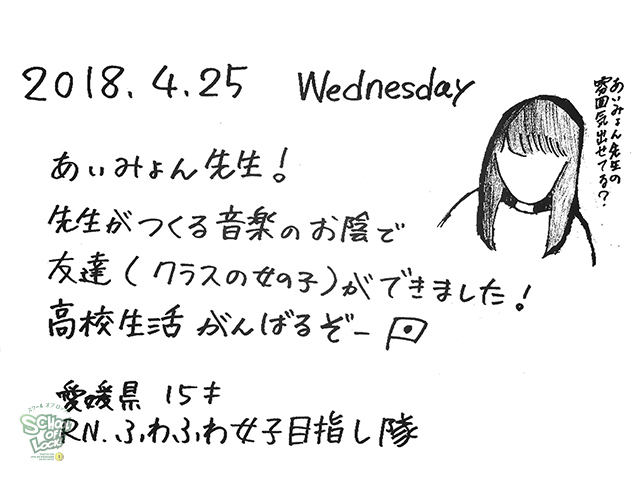 2018.4.25 Wednesday
あいみょん先生の
雰囲気出せてる？
あいみょん先生！
先生がつくる音楽のお陰で
友達(クラスの女の子)ができました！
高校生活がんばるぞー
愛媛県 15才
RN.ふわふわ女子目指し隊
スクール オブ ロック
SCHOOL
OF
LOCK!